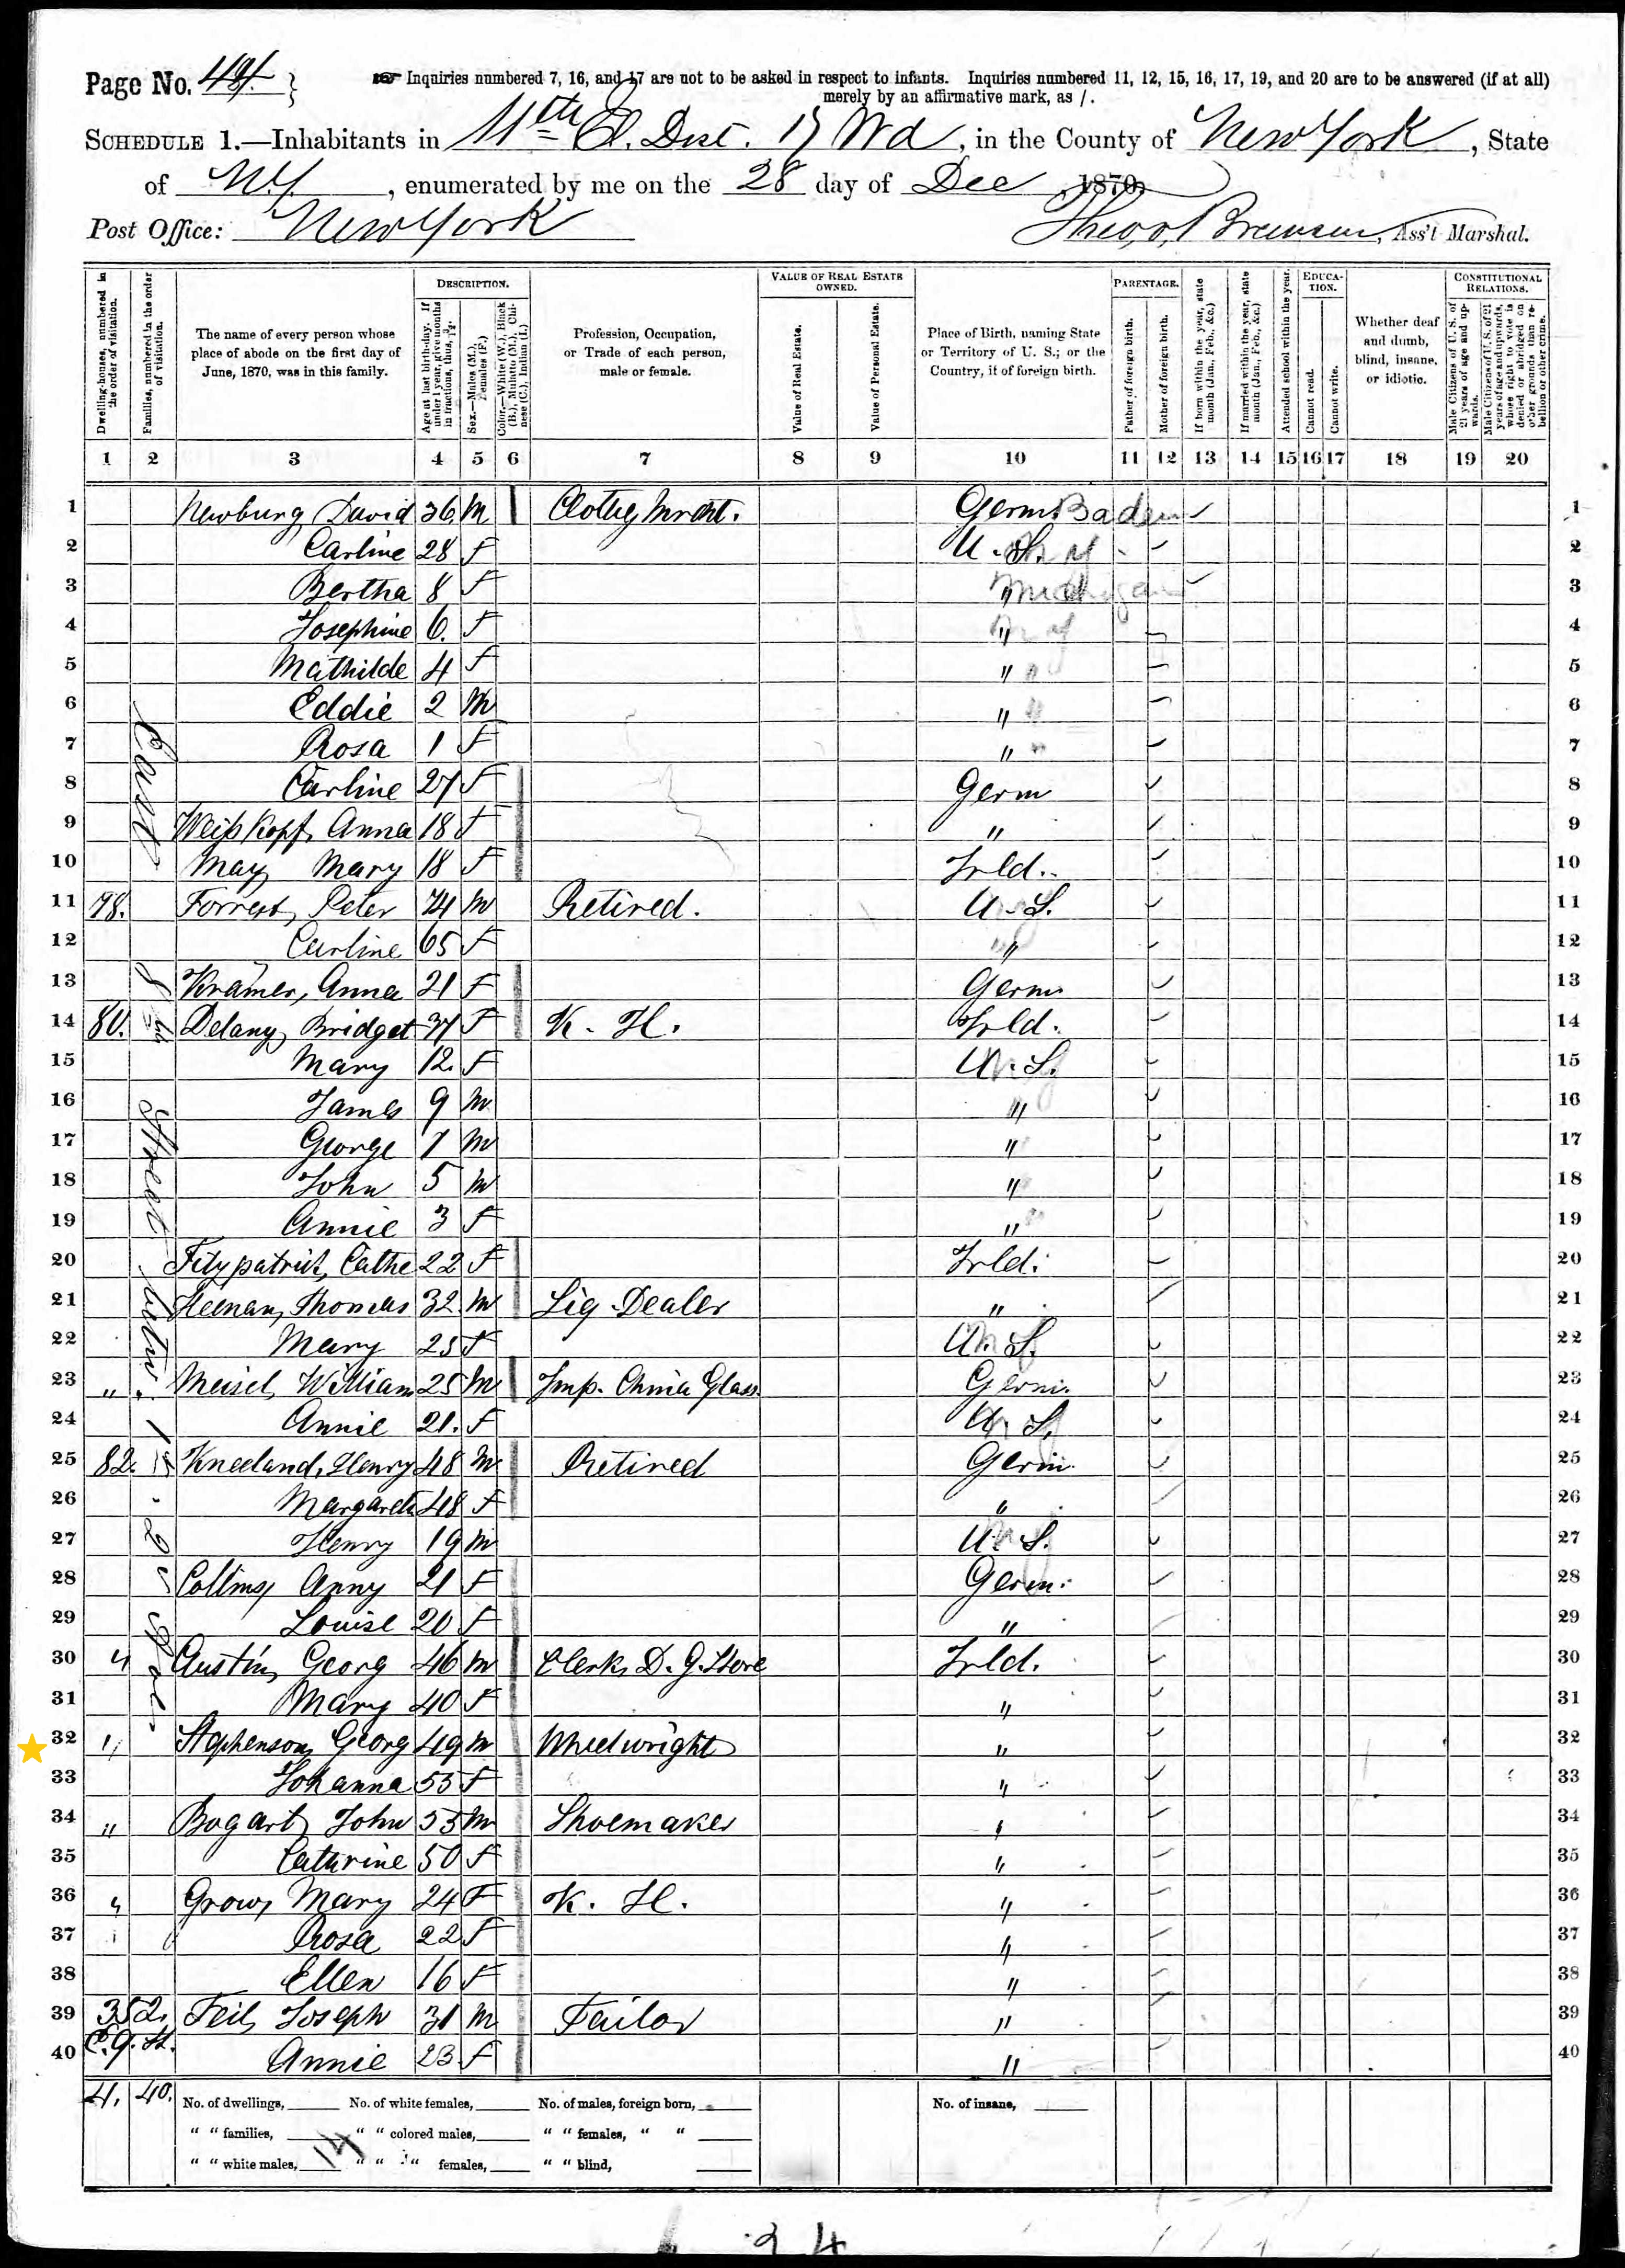 Page No. 44.
Inquiries numbered 7, 16, and 17 are not to be asked in respect to infants. Inquiries numbered 11, 12, 15, 16, 17, 19, and 20 are to be answered (if at all)
merely by an affirmative mark, as /.
SCHEDULE 1.—Inhabitants in 11th E. Dist. 17 Wd, in the County of New York, State
of N.Y., enumerated by me on the 28 day of Dec, 1870.
Post Office: New York
Ass't Marshal.
Dwelling-houses, numbered in the order of visitation.
Families, numbered in the order of visitation.
The name of every person whose place of abode on the first day of June, 1870, was in this family.
DESCRIPTION.
Age at last birth-day. If under 1 year, give months in fractions, thus, 3/12.
Sex.—Males (M.), Females (F.)
Color.—White (W.), Black (B.), Mulatto (M.), Chinese (C.), Indian (I.)
Profession, Occupation, or Trade of each person, male or female.
VALUE OF REAL ESTATE OWNED.
Value of Real Estate.
Value of Personal Estate.
Place of Birth, naming State or Territory of U. S.; or the Country, if of foreign birth.
PARENTAGE.
Father of foreign birth.
Mother of foreign birth.
If born within the year, state month (Jan., Feb., &c.)
If married within the year, state month (Jan., Feb., &c.)
Attended school within the year.
EDUCATION.
Cannot read.
Cannot write.
Whether deaf and dumb, blind, insane, or idiotic.
CONSTITUTIONAL RELATIONS.
Male Citizens of U. S. of 21 years of age and upwards.
Male Citizens of U. S. of 21 years of age and upwards, whose right to vote is denied or abridged on other grounds than rebellion or other crime.
1 2 3 4 5 6 7 8 9 10 11 12 13 14 15 16 17 18 19 20
1 Newburg, David 36 M Germ. Baden 1
2 Carline 28 F U. S. 2
3 Bertha 8 F " Michigan 3
4 Josephine 6. F " 4
5 Mathilde 4 F " 5
6 Eddie 2 M " 6
7 Rosa 1 F " 7
8 Carline 27 F Germ 8
9 Weißkopf, Anna 18 F " 9
10 May, Mary 18 F Irld. 10
11 78. Forrest, Peter 74 M Retired. U. S. 11
12 Carline 65 F " 12
13 Krämer, Anna 21 F Germ 13
14 80. Delany, Bridget 37 F K. H. Irld. 14
15 Mary 12. F U. S. 15
16 James 9 M " 16
17 George 7 M " 17
18 John 5 M " 18
19 Annie 3 F " 19
20 Fitzpatrick, Cathe 22 F Irld. 20
21 Heenan, Thomas 32 M Liq. Dealer " 21
22 Mary 25 F U. S. 22
23 " Meisel, William 25 M Imp. China Glass Germ. 23
24 Annie 21. F U. S. 24
25 82. Kneeland, Henry 48 M Retired Germ. 25
26 Margareth 48 F " 26
27 Henry 19 M U. S. 27
28 Collins, Anny 21 F Germ. 28
29 Louise 20 F " 29
30 " Austin, Georg 46 M Clerk, D. G. Store Irld. 30
31 Mary 40 F " 31
32 " Stephenson, Georg 49 M Wheelwright " 32
33 Johanna 55 F " 33
34 " Bogart, John 55 M Shoemaker " 34
35 Cathrine 50 F " 35
36 " Grow, Mary 24 F K. H. " 36
37 Rosa 22 F " 37
38 Ellen 16 F " 38
39 352. Feil, Joseph 31 M Tailor " 39
40 E. 9. St. Annie 23 F " 40
East 8th Street
4. 40.
No. of dwellings, No. of white females, No. of males, foreign born, No. of insane,
" " families, " " colored males, " " females, " "
" " white males, 14 " " " females, " " blind,
24